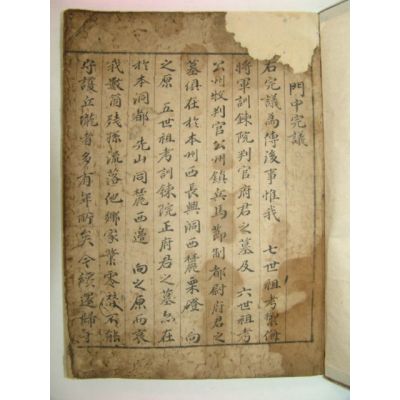 門中完議
右完議為傳後事惟我 七世祖考禦侮
將軍訓鍊院判官府君之墓及 六世祖考
公州牧判官公州鎮兵馬節制都尉府君之
墓俱在於本州西長興洞西麓栗磴 向
之原 五世祖考訓鍊院正府君之墓亦在
於本洞都 先山同麓西邊 向之原而哀
我數笛殘孫流落他鄉家業零替不能
守護丘壠者多有年所矣今纔還歸于